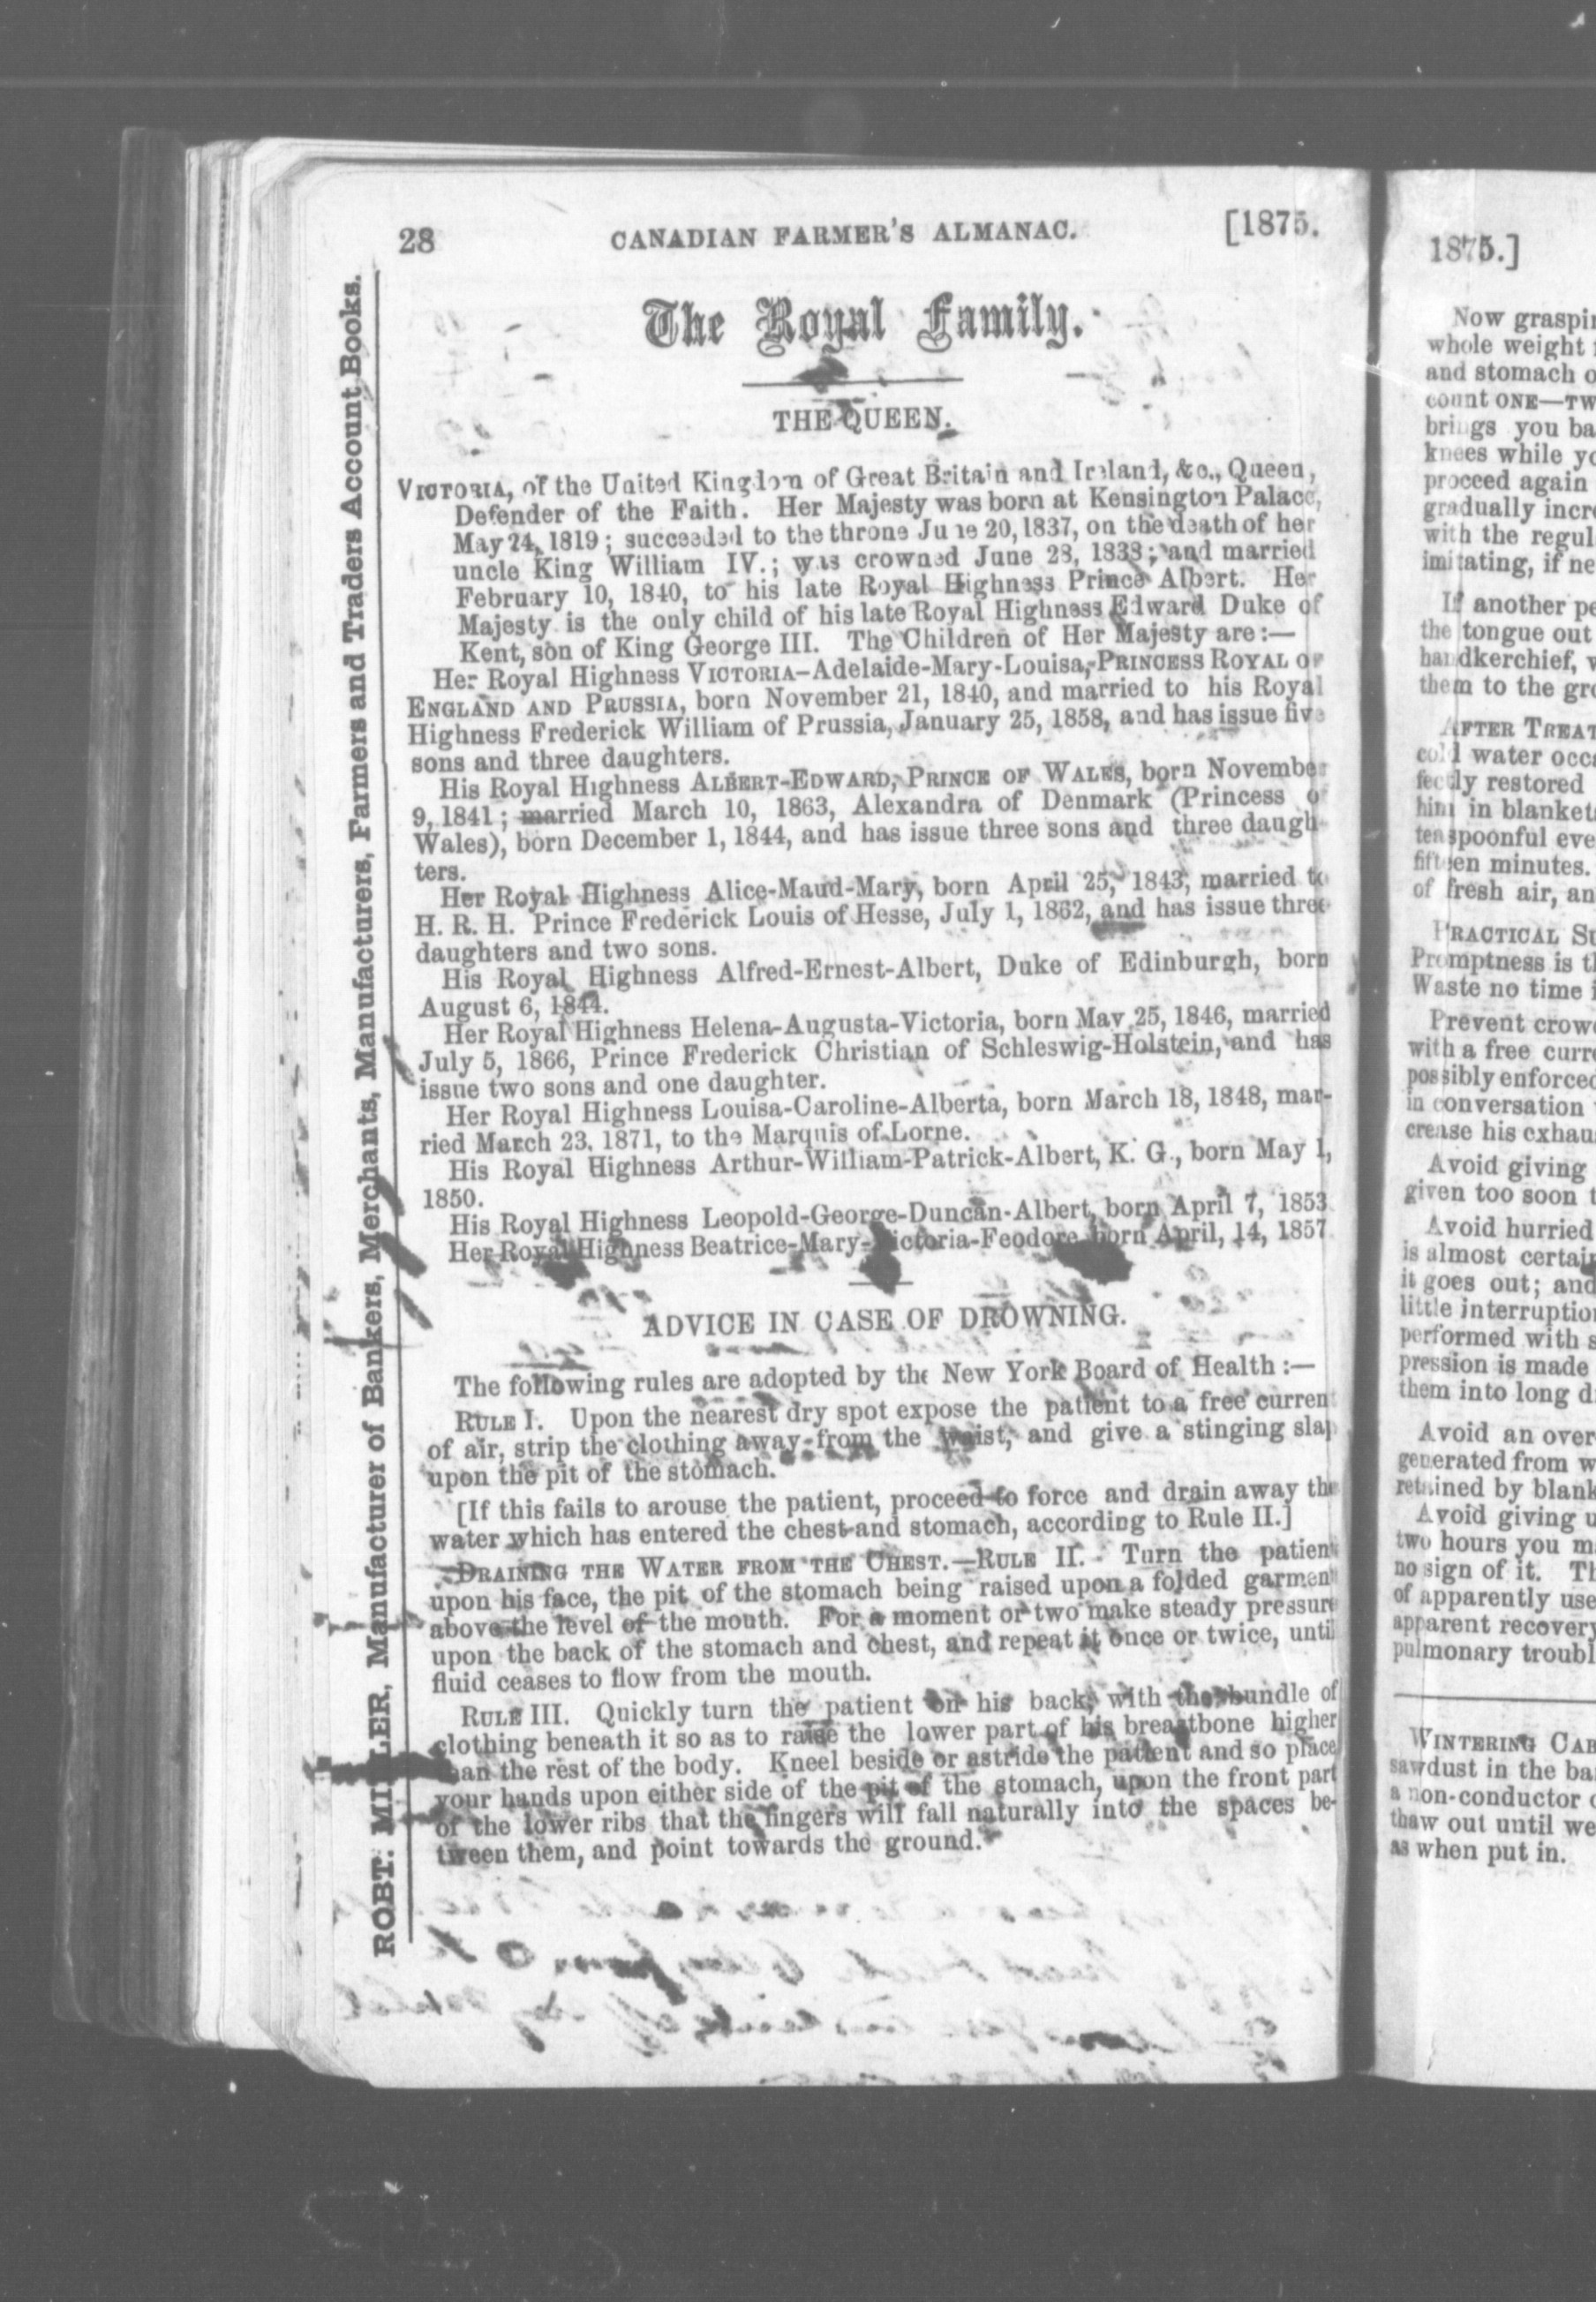 28 CANADIAN FARMER'S ALMANAC. [1875.
The Royal Family.
THE QUEEN.
VICTORIA, of the United Kingdom of Great Britain and Ireland, &c., Queen,
Defender of the Faith. Her Majesty was born at Kensington Palace,
May 24, 1819; succeeded to the throne June 20, 1837, on the death of her
uncle King William IV.; was crowned June 28, 1838; and married
February 10, 1840, to his late Royal Highness Prince Albert. Her
Majesty is the only child of his late Royal Highness Edward Duke of
Kent, son of King George III. The Children of Her Majesty are:—
Her Royal Highness VICTORIA-Adelaide-Mary-Louisa, PRINCESS ROYAL OF
ENGLAND AND PRUSSIA, born November 21, 1840, and married to his Royal
Highness Frederick William of Prussia, January 25, 1858, and has issue five
sons and three daughters.
His Royal Highness ALBERT-EDWARD, PRINCE OF WALES, born November
9, 1841; married March 10, 1863, Alexandra of Denmark (Princess of
Wales), born December 1, 1844, and has issue three sons and three daugh-
ters.
Her Royal Highness Alice-Maud-Mary, born April 25, 1843, married to
H. R. H. Prince Frederick Louis of Hesse, July 1, 1862, and has issue three
daughters and two sons.
His Royal Highness Alfred-Ernest-Albert, Duke of Edinburgh, born
August 6, 1844.
Her Royal Highness Helena-Augusta-Victoria, born May 25, 1846, married
July 5, 1866, Prince Frederick Christian of Schleswig-Holstein, and has
issue two sons and one daughter.
Her Royal Highness Louisa-Caroline-Alberta, born March 18, 1848, mar-
ried March 23, 1871, to the Marquis of Lorne.
His Royal Highness Arthur-William-Patrick-Albert, K. G., born May 1,
1850.
His Royal Highness Leopold-George-Duncan-Albert, born April 7, 1853
Her Royal Highness Beatrice-Mary-Victoria-Feodore born April, 14, 1857
ADVICE IN CASE OF DROWNING.
The following rules are adopted by the New York Board of Health :—
RULE I. Upon the nearest dry spot expose the patient to a free current
of air, strip the clothing away from the waist, and give a stinging slap
upon the pit of the stomach.
[If this fails to arouse the patient, proceed to force and drain away the
water which has entered the chest and stomach, according to Rule II.]
DRAINING THE WATER FROM THE CHEST.—RULE II. Turn the patient
upon his face, the pit of the stomach being raised upon a folded garment
above the level of the mouth. For a moment or two make steady pressure
upon the back of the stomach and chest, and repeat it once or twice, until
fluid ceases to flow from the mouth.
RULE III. Quickly turn the patient on his back, with the bundle of
clothing beneath it so as to raise the lower part of his breastbone higher
than the rest of the body. Kneel beside or astride the patient and so place
your hands upon either side of the pit of the stomach, upon the front part
of the lower ribs that the fingers will fall naturally into the spaces be-
tween them, and point towards the ground.
ROBT. MILLER, Manufacturer of Bankers, Merchants, Manufacturers, Farmers and Traders Account Books.
1875.]
Now graspin
whole weight
and stomach o
count ONE—TW
brings you ba
knees while yo
proceed again
gradually incre
with the regul
imitating, if ne
If another pe
the tongue out
handkerchief, w
them to the gro
AFTER TREAT
cold water occa
fectly restored
him in blankets
teaspoonful eve
fifteen minutes.
of fresh air, an
PRACTICAL SU
Promptness is th
Waste no time i
Prevent crowd
with a free curre
possibly enforced
in conversation
crease his exhau
Avoid giving
given too soon t
Avoid hurried
is almost certain
it goes out; and
little interruption
performed with s
pression is made
them into long d
Avoid an over
generated from w
retained by blank
Avoid giving u
two hours you m
no sign of it. Th
of apparently use
apparent recovery
pulmonary troubl
WINTERING CAB
sawdust in the ba
a non-conductor o
thaw out until we
as when put in.